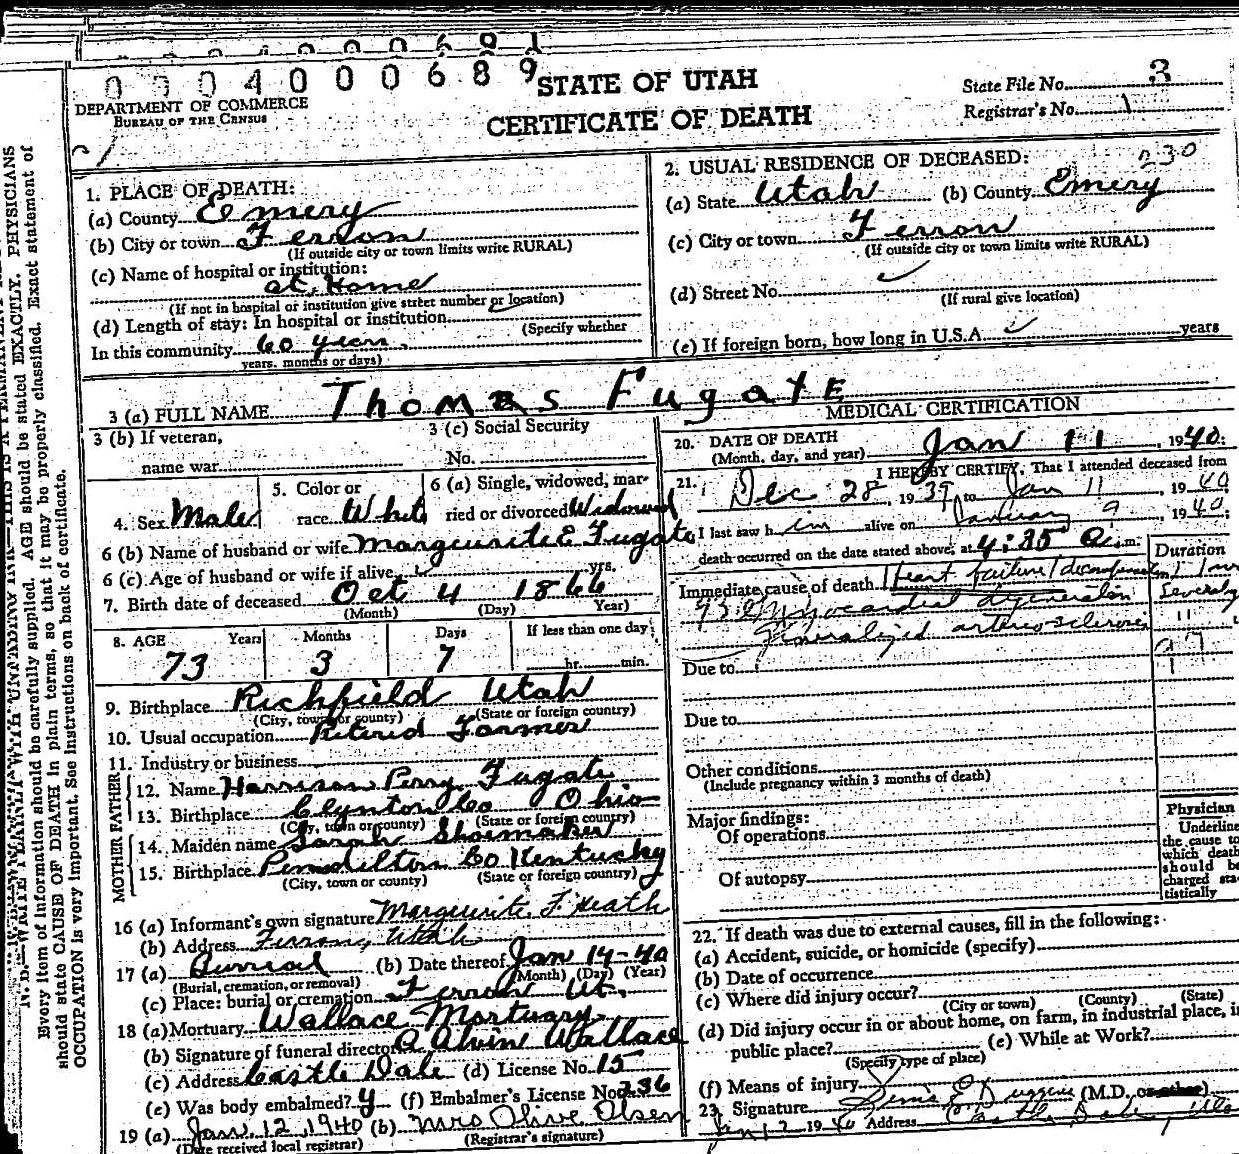 0004000689
STATE OF UTAH
CERTIFICATE OF DEATH
DEPARTMENT OF COMMERCE
BUREAU OF THE CENSUS
State File No. 3
Registrar's No. 1
1. PLACE OF DEATH:
(a) County Emery
(b) City or town Ferron
(If outside city or town limits write RURAL)
(c) Name of hospital or institution:
at Home
(If not in hospital or institution give street number or location)
(d) Length of stay: In hospital or institution
(Specify whether
In this community 60 years.
years. months or days)
2. USUAL RESIDENCE OF DECEASED: 230
(a) State Utah (b) County Emery
(c) City or town Ferron
(If outside city or town limits write RURAL)
(d) Street No.
(If rural give location)
(e) If foreign born, how long in U.S.A. years
3 (a) FULL NAME Thomas Fugate
3 (b) If veteran,
name war
3 (c) Social Security
No.
4. Sex Male
5. Color or
race White
6 (a) Single, widowed, mar-
ried or divorced Widowed
6 (b) Name of husband or wife Marguerite E Fugate
6 (c) Age of husband or wife if alive yrs.
7. Birth date of deceased Oct 4 1866
(Month) (Day) Year)
8. AGE Years Months Days If less than one day
73 3 7 hr. min.
9. Birthplace Richfield Utah
(City, town or county) (State or foreign country)
10. Usual occupation Retired Farmer
11. Industry or business
FATHER
12. Name Harrison Perry Fugate
13. Birthplace Clynton Co Ohio
(City, town or county) (State or foreign country)
MOTHER
14. Maiden name Sarah Shoemaker
15. Birthplace Pendilton Co Kentucky
(City, town or county) (State or foreign country)
16 (a) Informant's own signature Marguerite F Heath
(b) Address Ferron, Utah
17 (a) Burrial (b) Date thereof Jan 14-40
(Burial, cremation, or removal) (Month) (Day) (Year)
(c) Place: burial or cremation Ferron Ut.
18 (a) Mortuary Wallace Mortuary
(b) Signature of funeral director A Alvin Wallace
(c) Address Castle Dale (d) License No. 15
(e) Was body embalmed? y (f) Embalmer's License No. 236
19 (a) Jan. 12, 1940 (b) Mrs Olive Olsen
(Date received local registrar) (Registrar's signature)
MEDICAL CERTIFICATION
20. DATE OF DEATH
(Month, day, and year) Jan 11, 1940;
21. I HEREBY CERTIFY, That I attended deceased from
Dec 28, 1939, to Jan 11, 1940
I last saw him alive on January 9, 1940;
death occurred on the date stated above, at 4:35 a.m.
Duration
Immediate cause of death Heart failure (decompensation)
Myocardial degeneration Several
Generalized arteriosclerosis
Due to
Due to
Other conditions
(Include pregnancy within 3 months of death)
Major findings:
Of operations
Of autopsy
Physician
Underline
the cause to
which death
should be
charged sta-
tistically
22. If death was due to external causes, fill in the following:
(a) Accident, suicide, or homicide (specify)
(b) Date of occurrence
(c) Where did injury occur?
(City or town) (County) (State)
(d) Did injury occur in or about home, on farm, in industrial place, in
public place? (e) While at Work?
(Specify type of place)
(f) Means of injury
23 Signature (M.D. or other)
Jan 12 1940 Address Castle Dale, Utah
Every item of information should be carefully supplied. AGE should be stated EXACTLY. PHYSICIANS
should state CAUSE OF DEATH in plain terms, so that it may be properly classified. Exact statement of
OCCUPATION is very important. See Instructions on back of certificate.